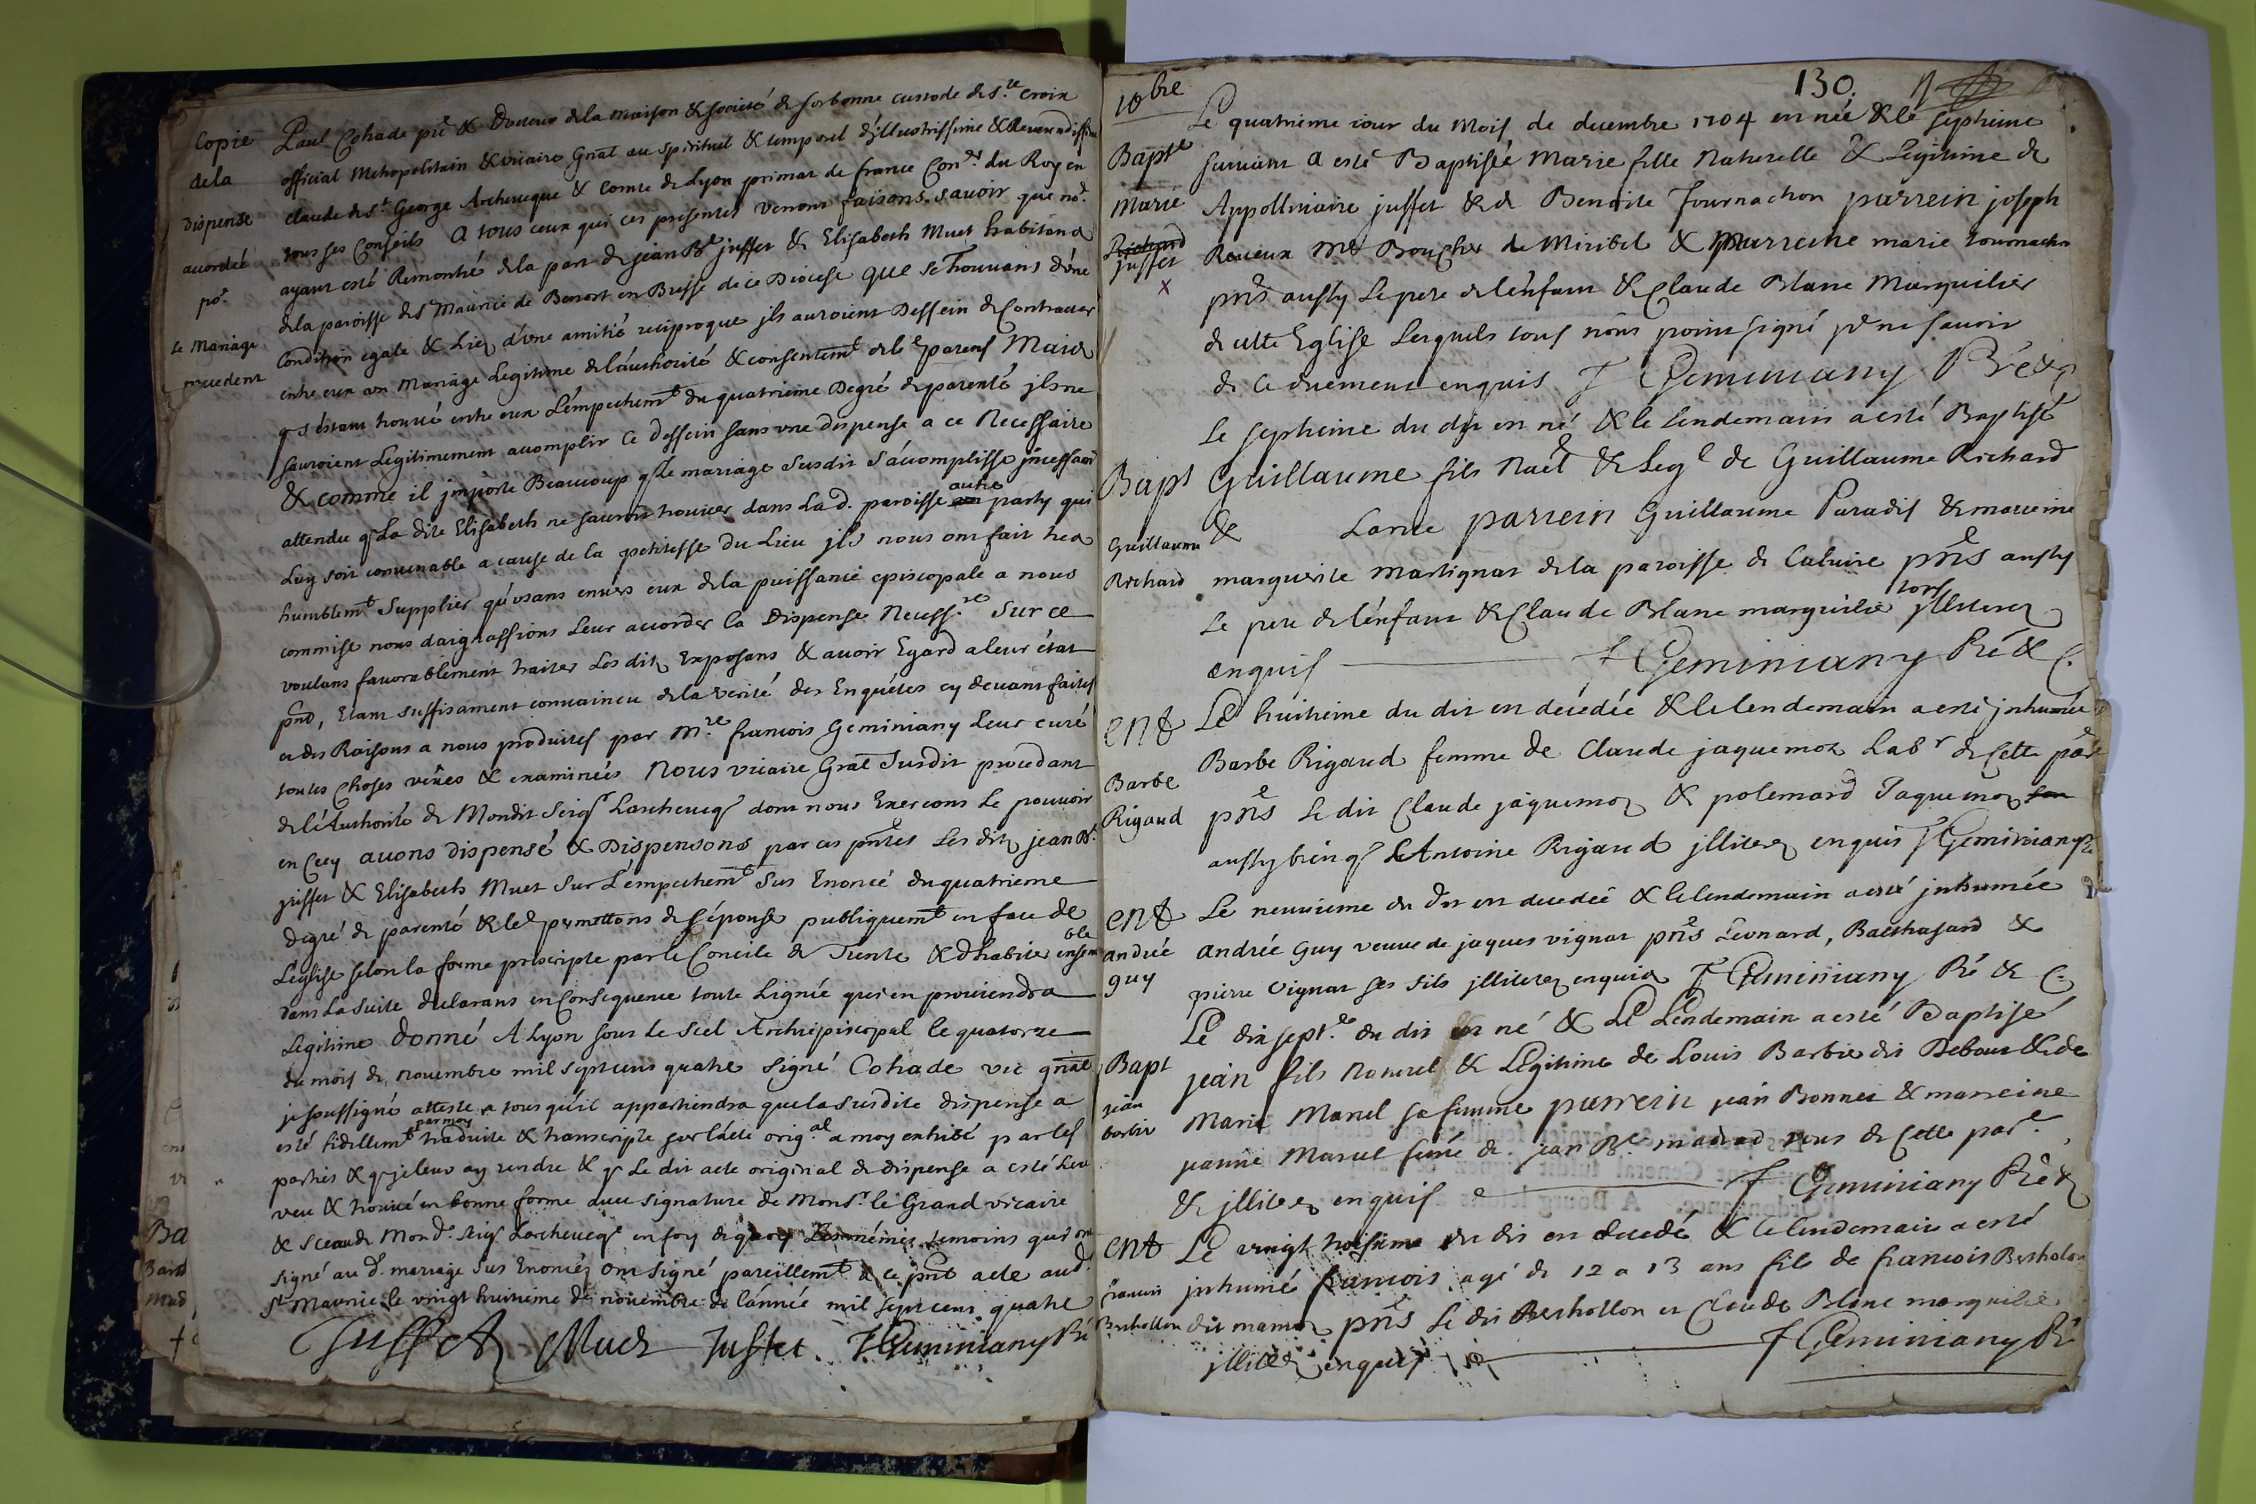 Copie
de la
Dispense
accordée
po.r
le Mariage
precedent
Paul Cohade pre & Docteur de la maison & société de sorbonne custode de s.te Croix
official Metropolitain & vicaire Gnal au spirituel & temporel d'illustrissime & Reverendissime
claude de s.t George Archeveque & Comte de Lyon primat de france Con.er du Roy en
tous ses Conseils A tous ceux qui ces presentes verront faisons savoir que no.s
ayant esté Remontré de la part de jean B.te juffet & Elisabeth Muet habitans
de la paroisse de s.t Maurice de Beinost en Bresse de ce Diocese que se trouvans d'une
Condition egale & Liez d'une amitié reciproque jls auroient Dessein de Contracter
entre eux un Mariage Legitime de l'authorité & consentem.t de le.s parens Mais
q s'étant trouvé entre eux L'empechem.t du quatrieme Degré de parenté jls ne
sauroient Legitimement accomplir ce dessein sans une dispense a ce Necessaire
& comme il jmporte Beaucoup q le mariage susdit s'accomplisse jncessam
attendu q La dite Elisabeth ne sauroit trouver dans La d. paroisse autre party qui
Luy soit convenable a cause de la petitesse du Lieu jls nous ont fait tres
humblem.t Supplier qu'usans envers eux de la puissance episcopale a nous
commise nous daignassions Leur accorder la Dispense Necess.re Sur ce
voulans favorablement traiter Les ditz Exposans & avoir Egard a leur état
pnt, Etant suffisament convaincu de la verité des Enquétes cy devant faites
et des Raisons a nous produites par M.re francois Geminiany Leur curé
toutes Choses veües & examinées Nous vicaire Gnal Susdit procedant
de l'Authorité de Mondit Seig.r L'archeveq. dont nous Exercons Le pouvoir
en Cecy avons dispensé & Dispensons par ces pntes Les ditz jean B.te
juffet & Elisabeth Muet Sur L'empechem.t Sus Enoncé du quatrieme
degré de parenté & le.s permettons de s'épouser publiquem.t en face de
L'église selon la forme prescripte par le Concile de Trente & d'habiter ensemble
dans La suite declarans en Consequence toute Lignée qui en proviendra
Legitime donné A Lyon sous Le Scel Archiepiscopal le quatorze
du mois de novembre mil sept cens quatre signé Cohade vic gnal
je soussigné atteste a tous qu'il appartiendra que la susdite dispense a
esté fidellem.t par moy traduite & transcripte sur l'acte orig.al a moy exhibé par les
parties & q je leur ay rendre & q Le dit acte original de dispense a esté Leu
veu & trouvé en bonne forme avec signature de Mons.r le Grand vicaire
& sceau de Mon d. seig.r L'archeveq en foy de quoy Les mémes temoins qui ont
signé au d. mariage sus Enoncéz ont signé pareillem.t a ce pnt acte au d.
S.t Maurice le vingt huitieme de novembre de l'année mil sept cens quatre
Juffet Muet Juffet F Geminiany Pré
130.
10bre
Bapt.e
Marie
Richard
juffet
x
Le quatrieme iour du Mois de decembre 1704 en née & le septieme
suivant a esté Baptisée Marie fille Naturelle & Legitime de
Appollinaire juffet & de Benoite Tournachon parrein joseph
Reveux M.e Boucher de Miribel & marreine marie tournachon
pnts aussy Le pere de l'enfant & Claude Blanc Marguilier
de cette Eglise Lesquels tous n'ont point signé p.r ne savoir
de ce duement enquis F Geminiany Pré & C
Bapt
Guillaume
Richard
Le septieme du dit en né & le lendemain a esté Baptisé
Guillaume fils Nael & Leg.e de Guillaume Richard
& Larue parrein Guillaume Paradis & marreine
marguerite Martignat de la paroisse de Caluire pnts aussy
Le pere de l'enfant & Claude Blanc marguilier tous jlliterez
enquis F Geminiany Pré & C.
ent
Barbe
Rigaud
Le huitieme du dit en decédée & le lendemain a esté jnhumée
Barbe Rigaud femme de Claude jaquemoz Lab.r de Cette pare
pnts Le dit Claude jaquemoz & polemard Jaquemoz
aussy bien q Antoine Rigaud jlliterez enquis F Geminiany P
ent
andrée
guy
Le neuvieme du dit en decedée & le lendemain a esté jnhumée
andrée Guy veuve de jaques vignat pnts Léonard, Balthasard &
pierre vignat ses fils jlliterez enquis F Geminiany Pré & C.
Bapt
jean
barbier
Le dix sept.e du dit en né & Le Lendemain a esté Baptisé
jean fils Naturel & Legitime de Louis Barbier dit Debout & de
Marie Manel sa femme parrein jean Bonnet & marreine
jeanne Manel femme de jean B.te tous de Cette par.e
& jlliterez enquis F Geminiany Pré &
ent
francois
Berthollon
Le vingt troisieme du dit en decedé & le lendemain a esté
jnhumé francois agé de 12 a 13 ans fils de francois Bertholon
dit pnts Le dit Berthollon et Claude Blanc marguilier
jlliterez enquis F Geminiany Pré